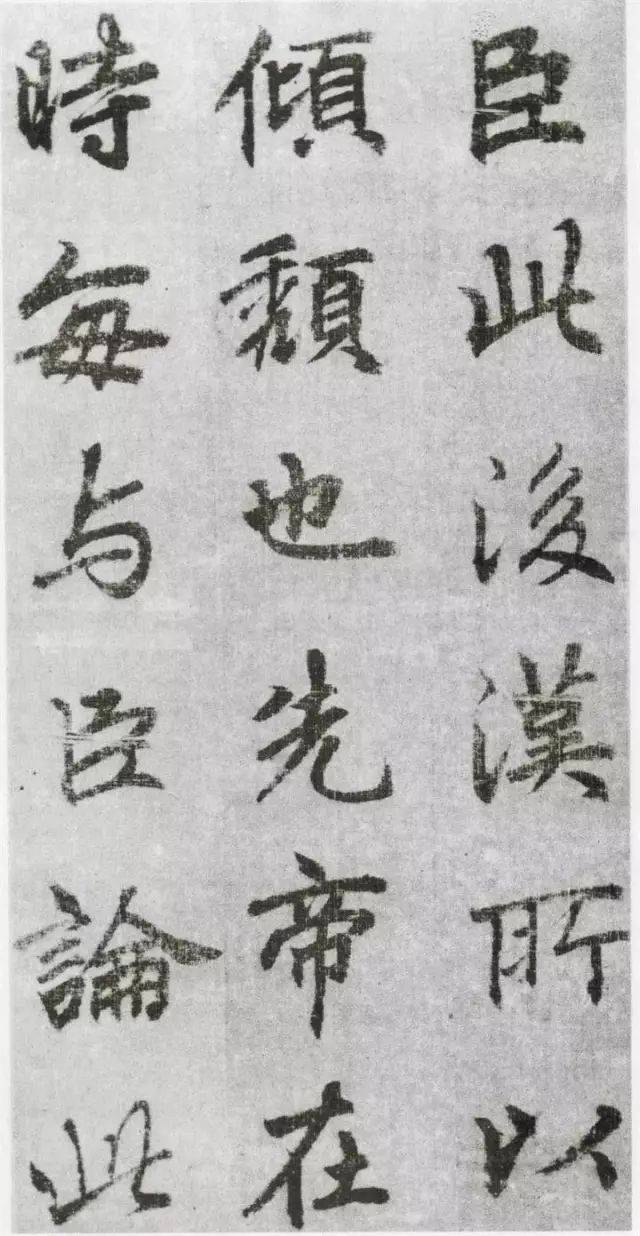 臣此後漢所以
傾頽也先帝在
時每与臣論此